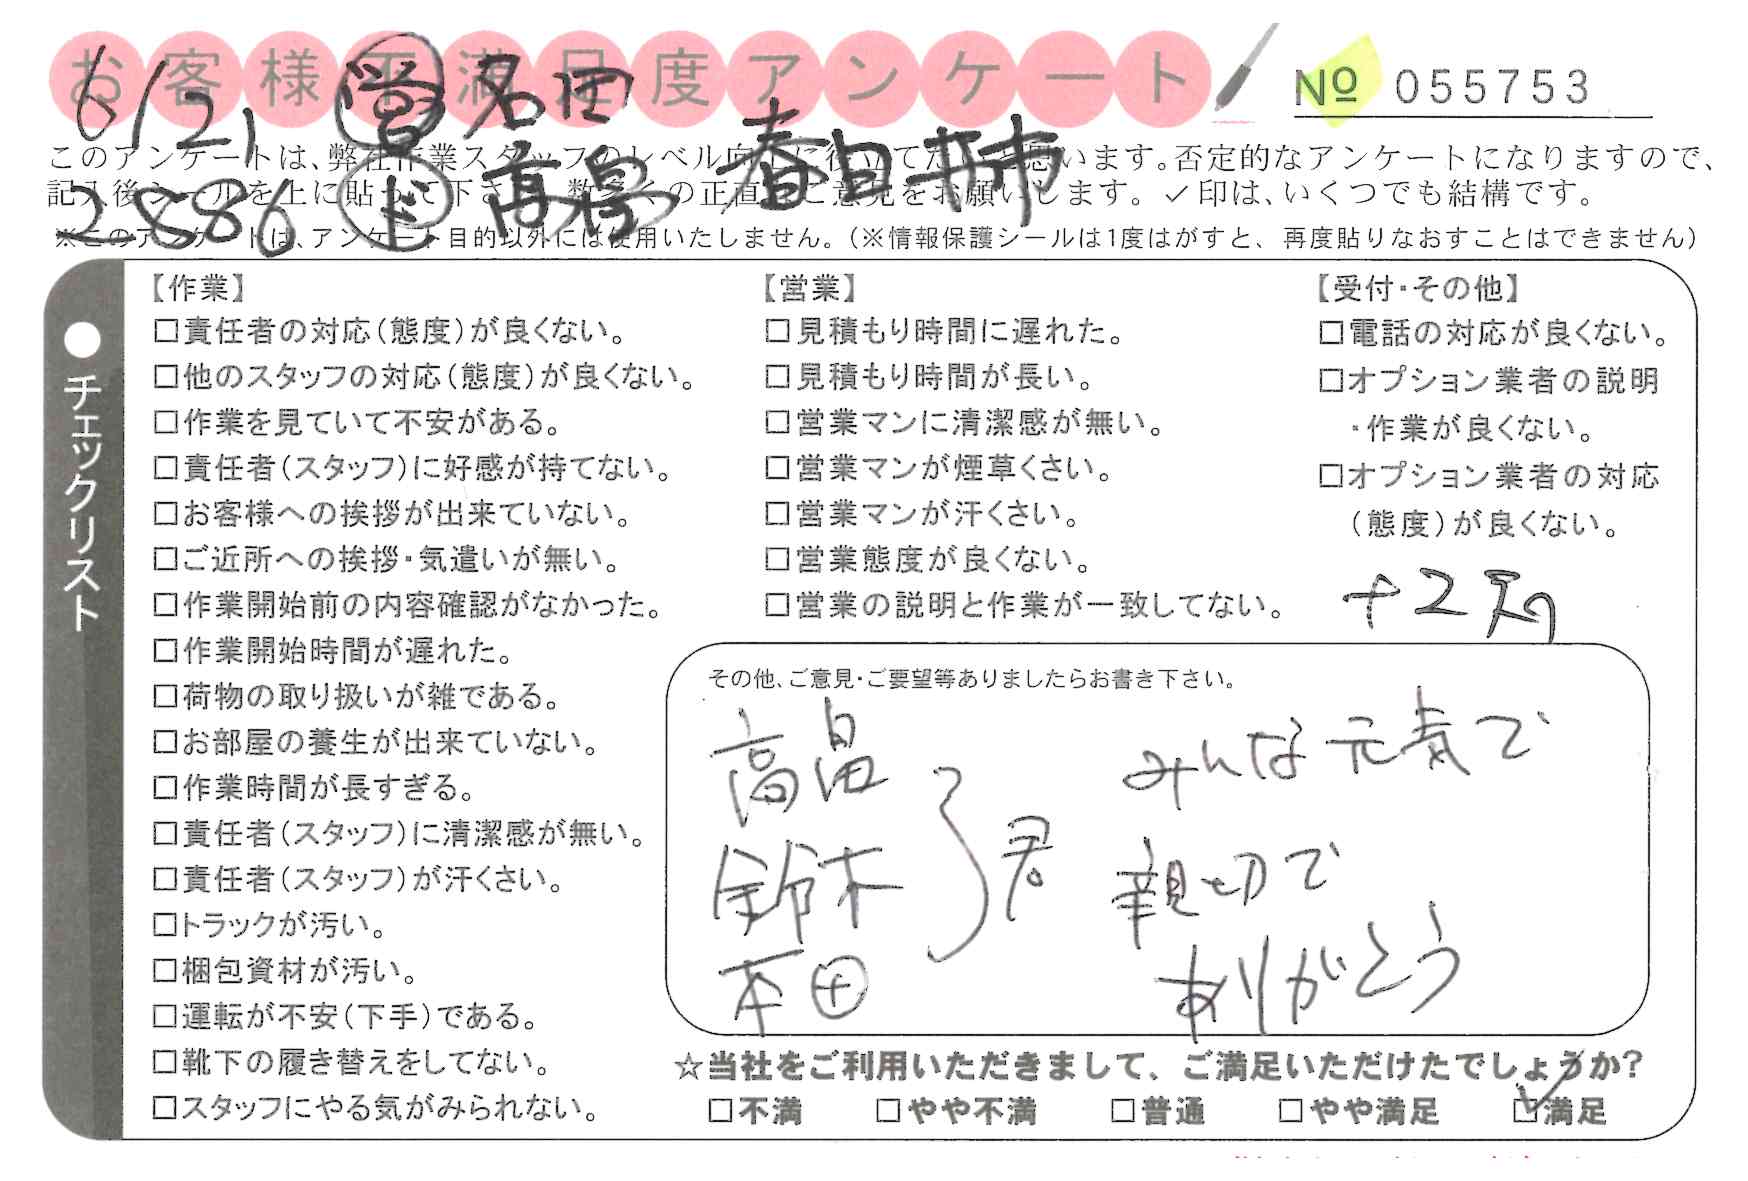 お客様不満足度アンケート
№ 055753
6/21 営 名田
2886 ド 高畠 春日井市
このアンケートは、弊社作業スタッフのレベル向上に役立てたいと思います。否定的なアンケートになりますので、
記入後シールを上に貼って下さい。数多くの正直なご意見をお願いします。✓印は、いくつでも結構です。
※このアンケートは、アンケート目的以外には使用いたしません。（※情報保護シールは1度はがすと、再度貼りなおすことはできません）
●チェックリスト
【作業】
□責任者の対応（態度）が良くない。
□他のスタッフの対応（態度）が良くない。
□作業を見ていて不安がある。
□責任者（スタッフ）に好感が持てない。
□お客様への挨拶が出来ていない。
□ご近所への挨拶・気遣いが無い。
□作業開始前の内容確認がなかった。
□作業開始時間が遅れた。
□荷物の取り扱いが雑である。
□お部屋の養生が出来ていない。
□作業時間が長すぎる。
□責任者（スタッフ）に清潔感が無い。
□責任者（スタッフ）が汗くさい。
□トラックが汚い。
□梱包資材が汚い。
□運転が不安（下手）である。
□靴下の履き替えをしてない。
□スタッフにやる気がみられない。
【営業】
□見積もり時間に遅れた。
□見積もり時間が長い。
□営業マンに清潔感が無い。
□営業マンが煙草くさい。
□営業マンが汗くさい。
□営業態度が良くない。
□営業の説明と作業が一致してない。
【受付・その他】
□電話の対応が良くない。
□オプション業者の説明
・作業が良くない。
□オプション業者の対応
（態度）が良くない。
その他、ご意見・ご要望等ありましたらお書き下さい。
高畠
鈴木
本田
君
みんな元気で
親切で
ありがとう
☆当社をご利用いただきまして、ご満足いただけたでしょうか?
□不満 □やや不満 □普通 □やや満足 ☑満足